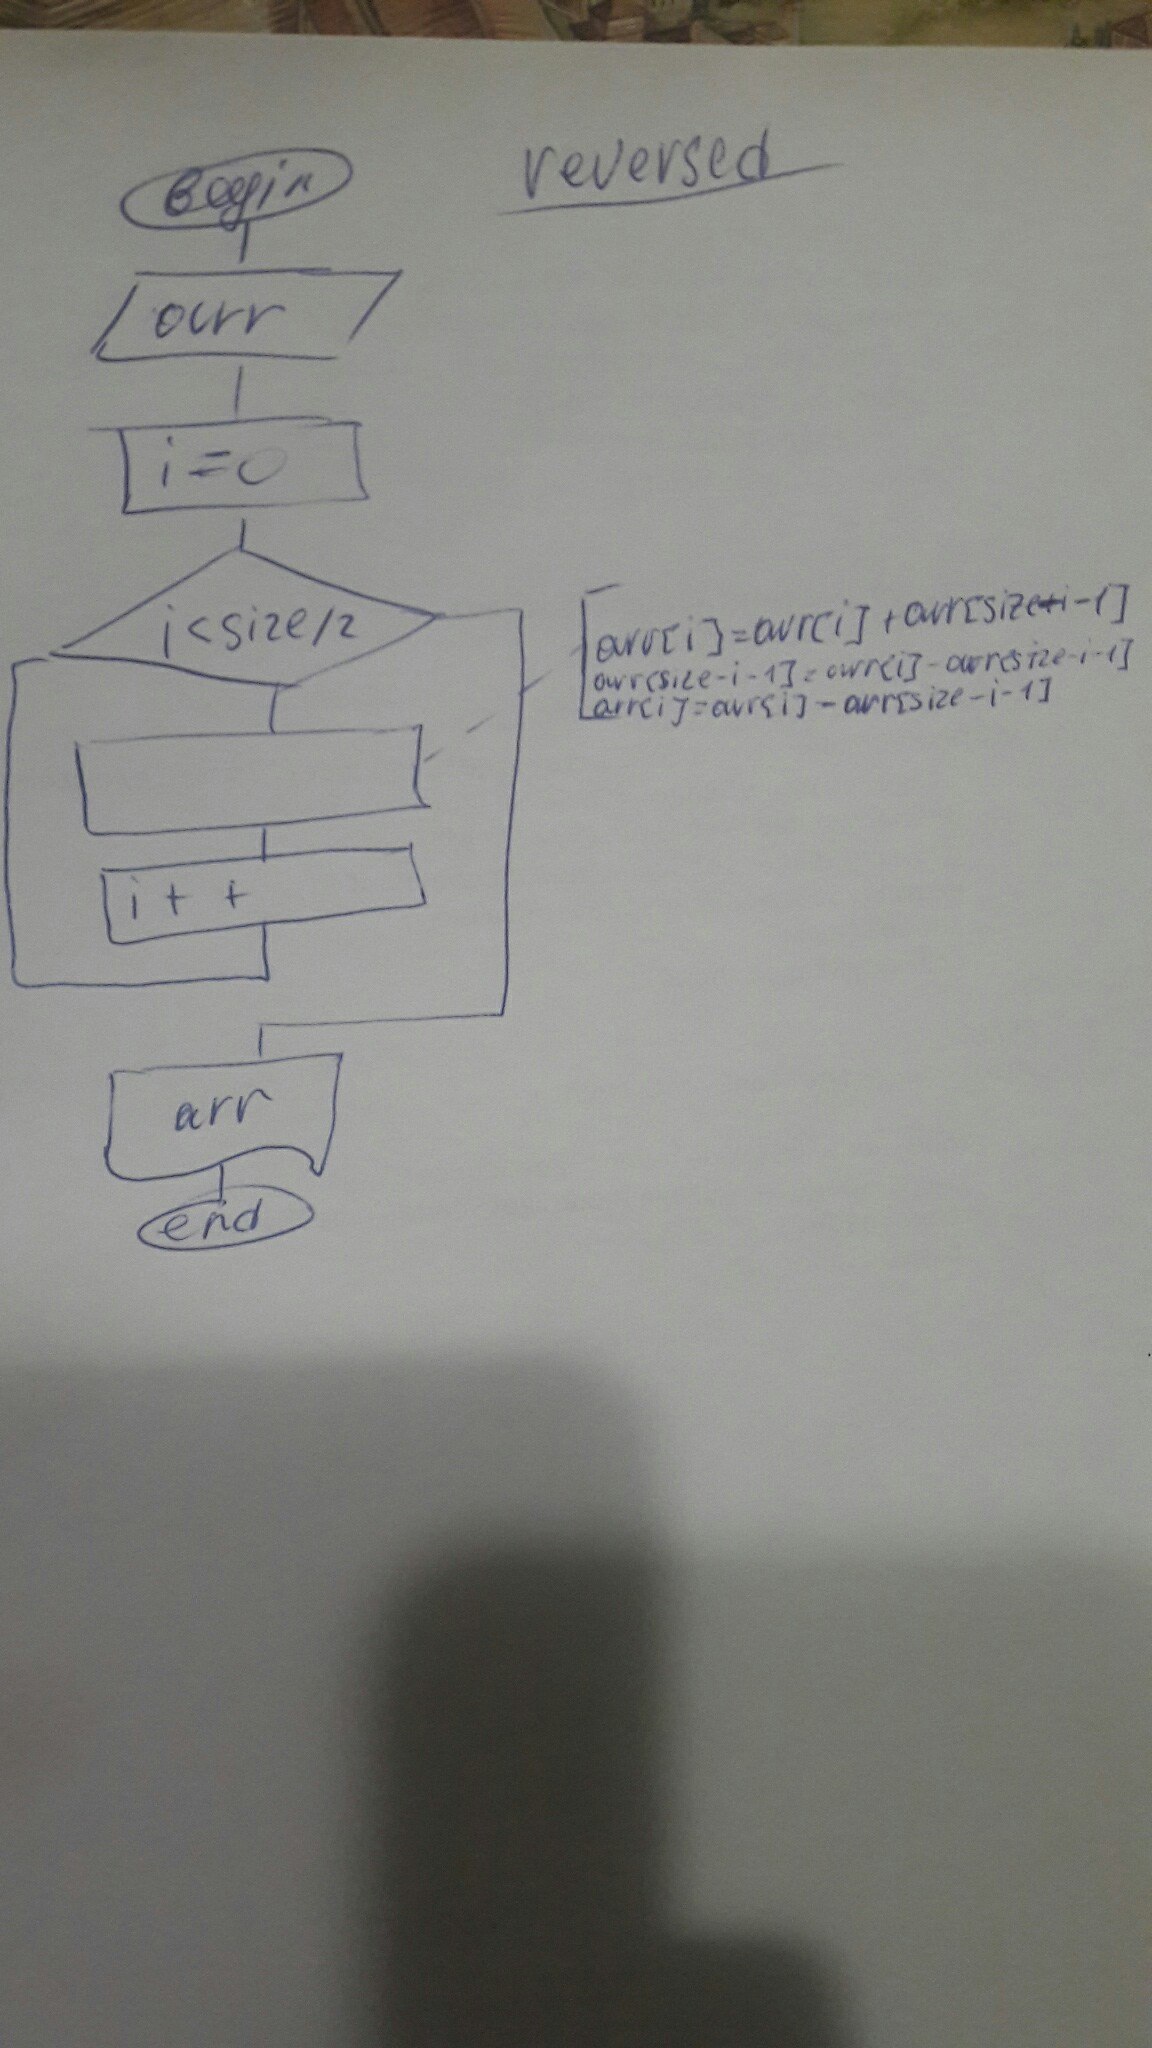 reversed
Begin
arr
i=0
i<size/2
arr[i]=arr[i]+arr[size-i-1]
arr[size-i-1]=arr[i]-arr[size-i-1]
arr[i]=arr[i]-arr[size-i-1]
i++
arr
end